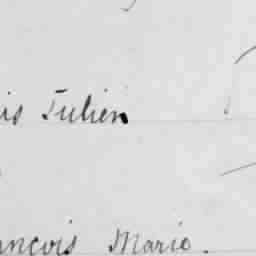 is Julien
ançois Marie.